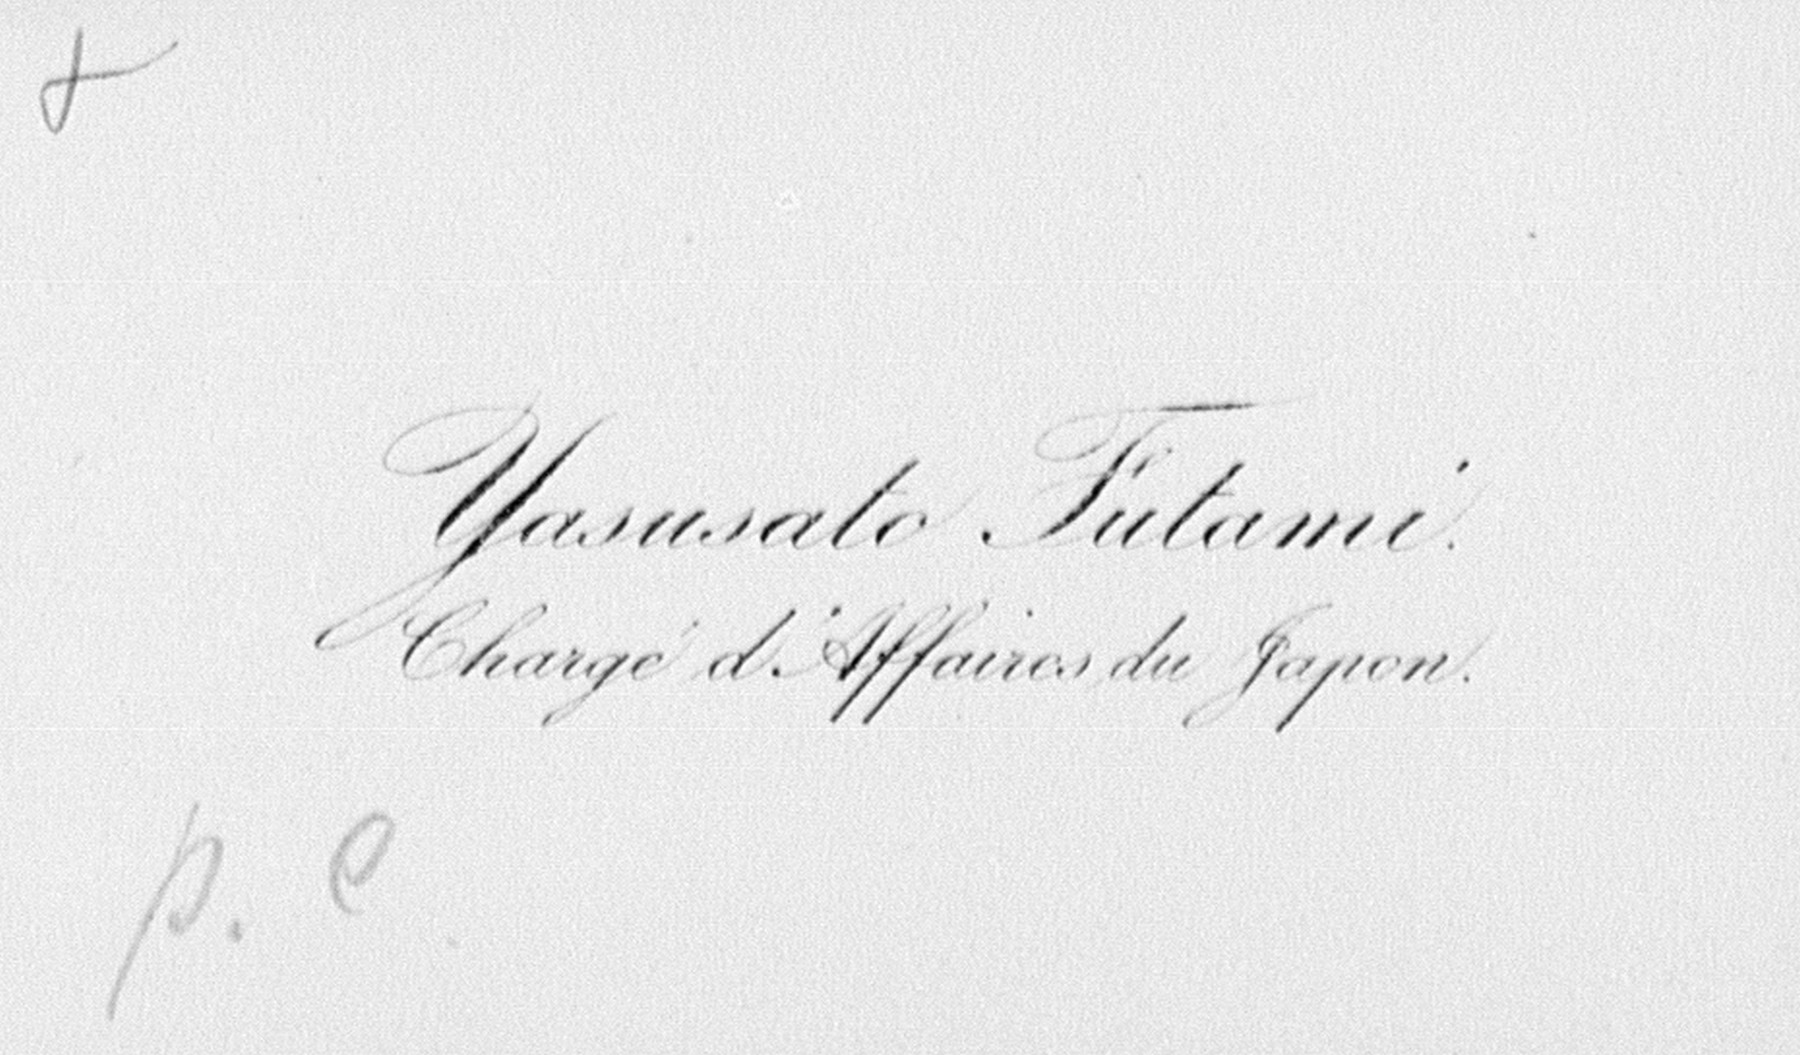 Yasusato Futami.
Chargé d'Affaires du Japon.
p. c.